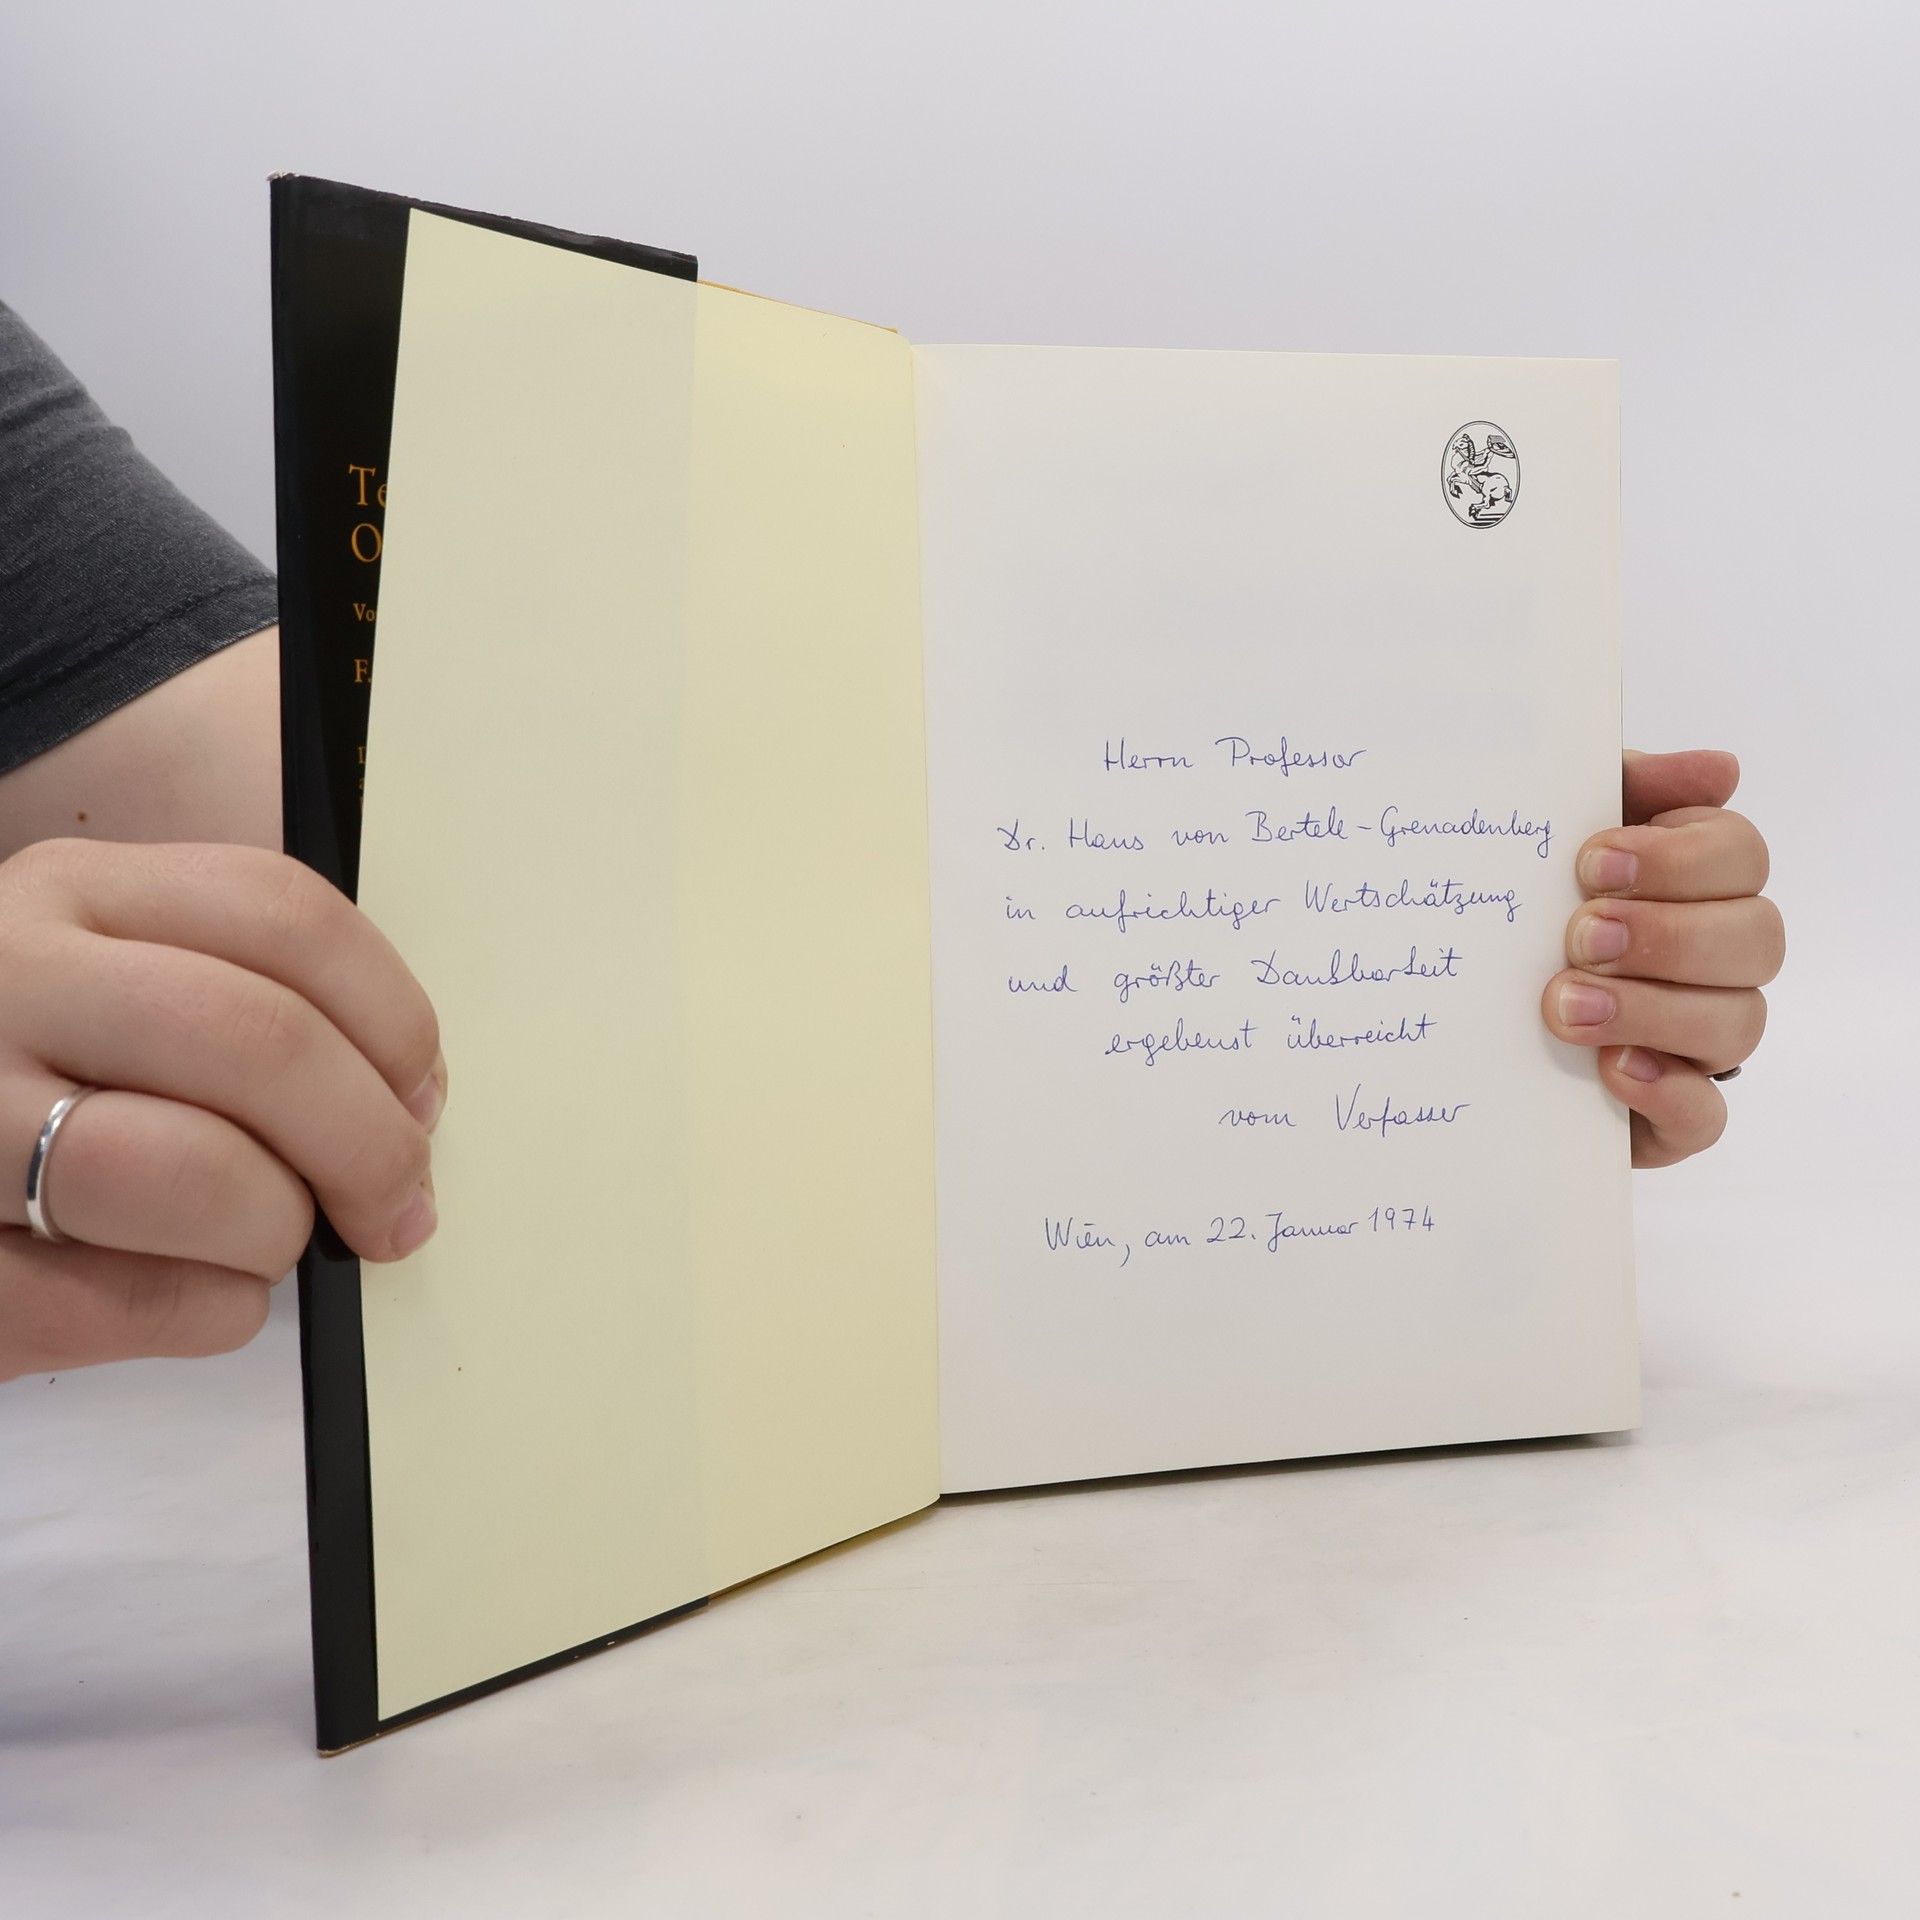 Te
O
Vo
F.
Herrn Professor
Dr. Hans von Bertele-Grenadenberg
in aufrichtiger Wertschätzung
und größter Dankbarkeit
ergebenst überreicht
vom Verfasser
Wien, am 22. Januar 1974